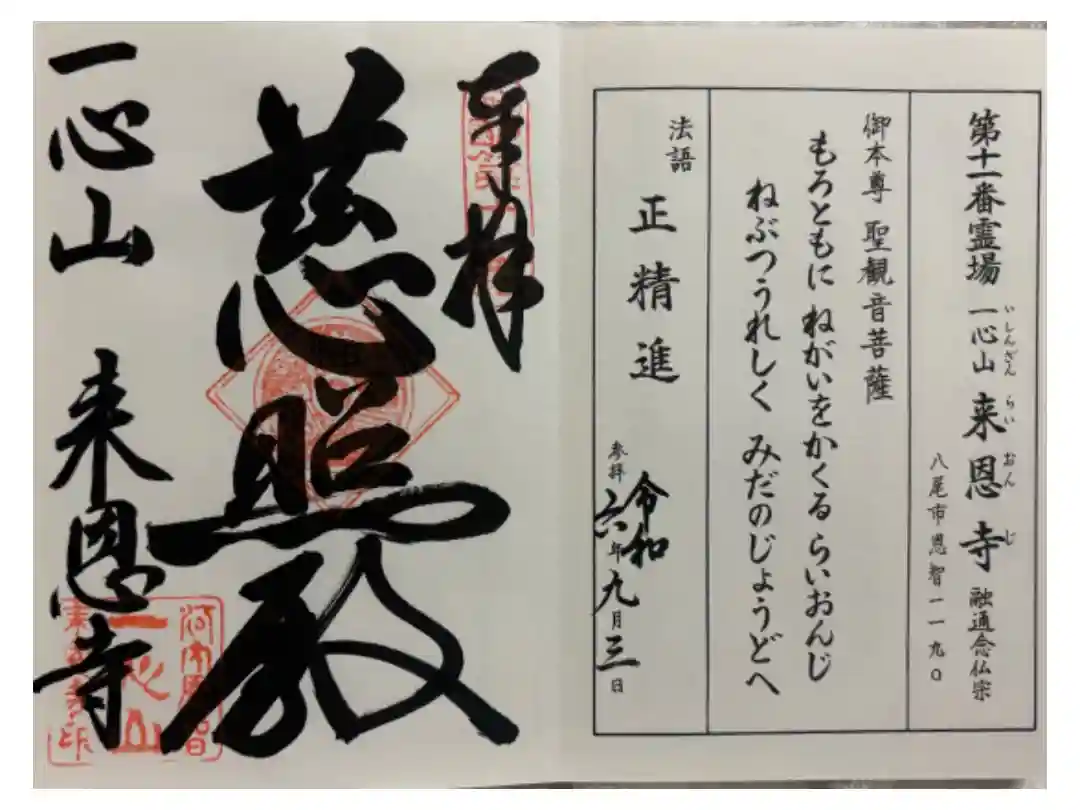 第十一番霊場 一心山 来恩寺 融通念仏宗
いしんざん らいおんじ
八尾市恩智一一九〇
御本尊 聖観音菩薩
もろともに ねがいをかくる らいおんじ
ねぶつうれしく みだのじょうどへ
法語
正精進
参拝 令和六年九月三日
奉拝
慈照
一心山 来恩寺
河内恩智
一心山
来恩寺印